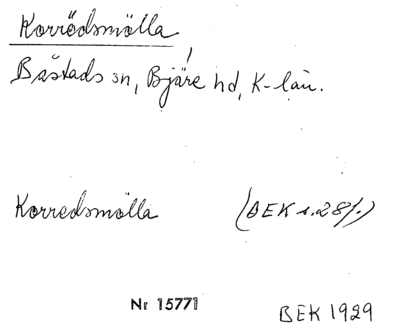 Korrödsmölla,
Båstads sn, Bjäre hd, K-län.
Korredsmölla (BEK s. 28/.)
Nr 15771
BEK 1929